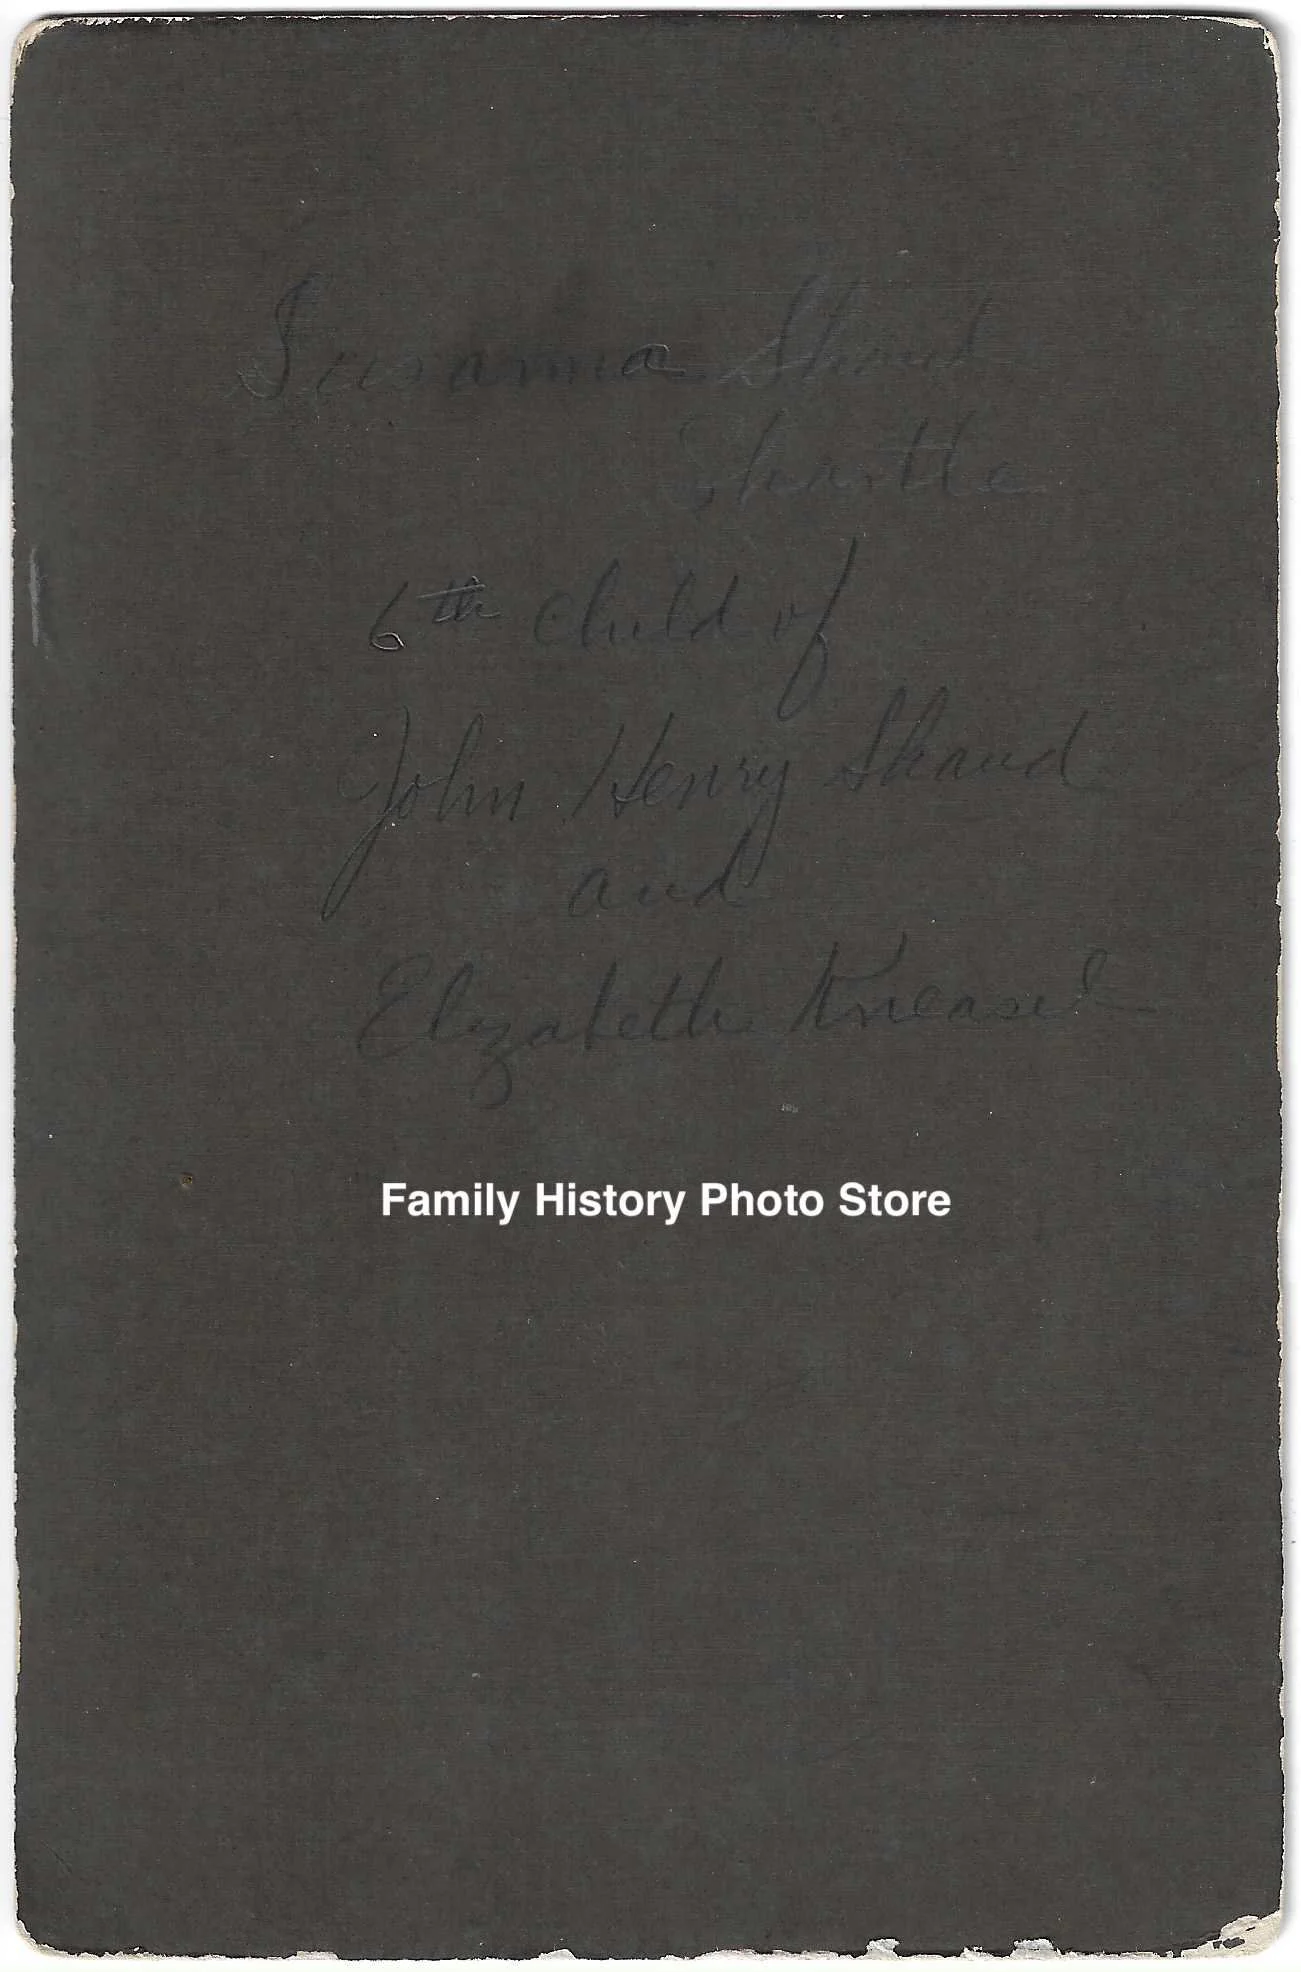 Susanna Shaud
Shartle
6th child of
John Henry Shaud
and
Elizabeth Kneasel
Family History Photo Store